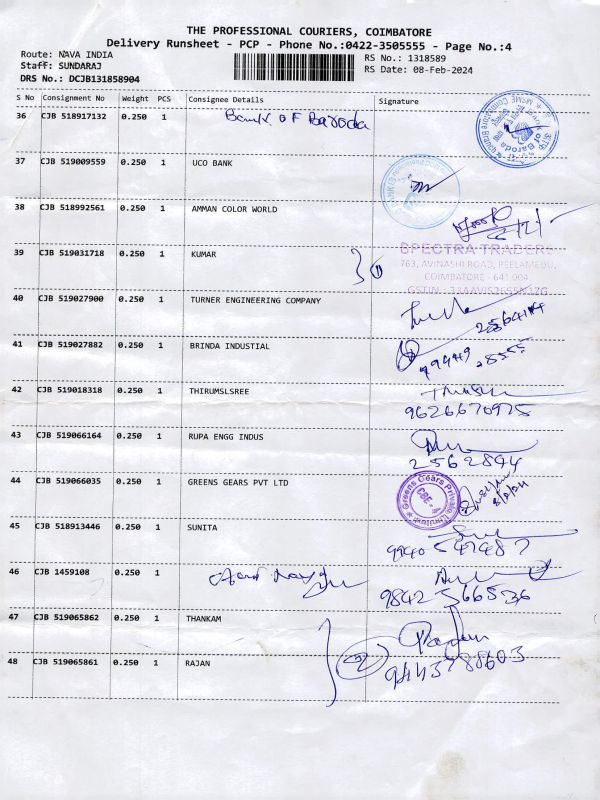 THE PROFESSIONAL COURIERS, COIMBATORE
Delivery Runsheet - PCP - Phone No.:0422-3505555 - Page No.:4
Route: NAVA INDIA
RS No.: 1318589
Staff: SUNDARAJ
RS Date: 08-Feb-2024
DRS No.: DCJB131858904
S No Consignment No Weight PCS Consignee Details Signature
36 CJB 518917132 0.250 1 Bank Of Baroda
37 CJB 519009559 0.250 1 UCO BANK
38 CJB 518992561 0.250 1 AMMAN COLOR WORLD
SPECTRA TRADERS
39 CJB 519031718 0.250 1 KUMAR
763, AVINASHI ROAD, PEELAMEDU,
COIMBATORE - 641 004
40 CJB 519027900 0.250 1 TURNER ENGINEERING COMPANY
2564114
41 CJB 519027882 0.250 1 BRINDA INDUSTIAL
99449 28555
42 CJB 519018318 0.250 1 THIRUMSLSREE
9626670975
43 CJB 519066164 0.250 1 RUPA ENGG INDUS
2562894
44 CJB 519066035 0.250 1 GREENS GEARS PVT LTD
Greens Gears Private Limited
8/2/24
45 CJB 518913446 0.250 1 SUNITA
46 CJB 1459108 0.250 1
9842566536
47 CJB 519065862 0.250 1 THANKAM
48 CJB 519065861 0.250 1 RAJAN
9443788603